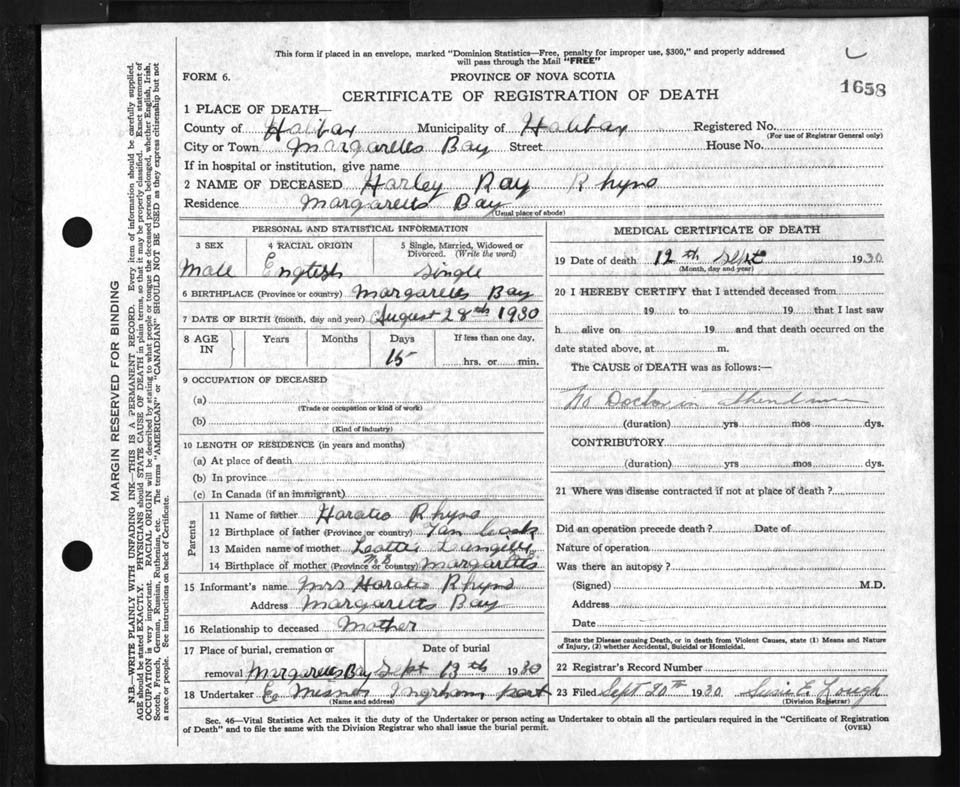 This form if placed in an envelope, marked "Dominion Statistics—Free, penalty for improper use, $300," and properly addressed
will pass through the Mail "FREE"
FORM 6. PROVINCE OF NOVA SCOTIA
1658
CERTIFICATE OF REGISTRATION OF DEATH
1 PLACE OF DEATH—
County of Halifax Municipality of Halifax Registered No.
(For use of Registrar General only)
City or Town Margarettes Bay Street House No.
If in hospital or institution, give name
2 NAME OF DECEASED Harley Ray Rhyno
Residence Margaretts Bay
(Usual place of abode)
PERSONAL AND STATISTICAL INFORMATION
3 SEX 4 RACIAL ORIGIN 5 Single, Married, Widowed or Divorced. (Write the word)
Male English Single
6 BIRTHPLACE (Province or country) Margarettes Bay
7 DATE OF BIRTH (month, day and year) August 28th 1930
8 AGE IN Years Months Days If less than one day,
15 hrs. or min.
9 OCCUPATION OF DECEASED
(a)
(Trade or occupation or kind of work)
(b)
(Kind of industry)
10 LENGTH OF RESIDENCE (in years and months)
(a) At place of death
(b) In province
(c) In Canada (if an immigrant)
Parents
11 Name of father Horatio Rhyno
12 Birthplace of father (Province or country)
13 Maiden name of mother
14 Birthplace of mother (Province or country) Margaretts
15 Informant's name Mrs Horatio Rhyno
Address Margaretts Bay
16 Relationship to deceased Mother
17 Place of burial, cremation or removal Date of burial
Margarettes Bay Sept 13th 1930
18 Undertaker Ingram port
(Name and address)
MEDICAL CERTIFICATE OF DEATH
19 Date of death 12th Sept 1930
(Month, day and year)
20 I HEREBY CERTIFY that I attended deceased from
19 to 19 that I last saw
h alive on 19 and that death occurred on the
date stated above, at m.
The CAUSE of DEATH was as follows:—
No Doctor in attendance
(duration) yrs mos dys.
CONTRIBUTORY
(duration) yrs mos dys.
21 Where was disease contracted if not at place of death?
Did an operation precede death? Date of
Nature of operation
Was there an autopsy?
(Signed) M.D.
Address
Date
State the Disease causing Death, or in death from Violent Causes, state (1) Means and Nature
of Injury, (2) whether Accidental, Suicidal or Homicidal.
22 Registrar's Record Number
23 Filed Sept 20th 1930 Susie E. Lough
(Division Registrar)
Sec. 46—Vital Statistics Act makes it the duty of the Undertaker or person acting as Undertaker to obtain all the particulars required in the "Certificate of Registration
of Death" and to file the same with the Division Registrar who shall issue the burial permit.
(OVER)
MARGIN RESERVED FOR BINDING
N.B.—WRITE PLAINLY WITH UNFADING INK—THIS IS A PERMANENT RECORD. Every item of information should be carefully supplied.
AGE should be stated EXACTLY. PHYSICIANS should STATE CAUSE OF DEATH in plain terms, so that it may be properly classified. Exact statement of
OCCUPATION is very important. RACIAL ORIGIN will be described by stating to what people or tongue the deceased person belonged, whether English, Irish,
Scotch, French, German, Russian, Ruthenian, etc. The terms "AMERICAN" or "CANADIAN" SHOULD NOT BE USED as they express citizenship but not
a race or people. See instructions on back of Certificate.